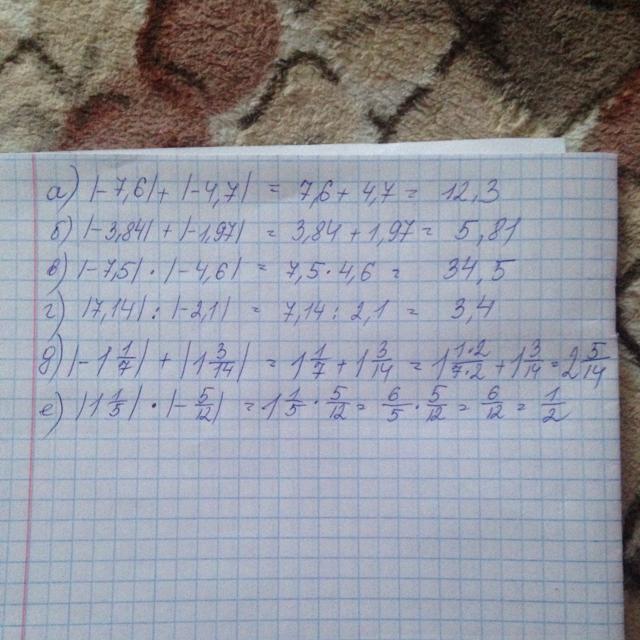 а) |-7,6| + |-4,7| = 7,6 + 4,7 = 12,3
б) |-3,84| + |-1,97| = 3,84 + 1,97 = 5,81
в) |-7,5| · |-4,6| = 7,5 · 4,6 = 34,5
г) |7,14| : |-2,1| = 7,14 : 2,1 = 3,4
д) |-1 1/7| + |1 3/14| = 1 1/7 + 1 3/14 = 1 1·2/7·2 + 1 3/14 = 2 5/14
е) |1 1/5| · |-5/12| = 1 1/5 · 5/12 = 6/5 · 5/12 = 6/12 = 1/2